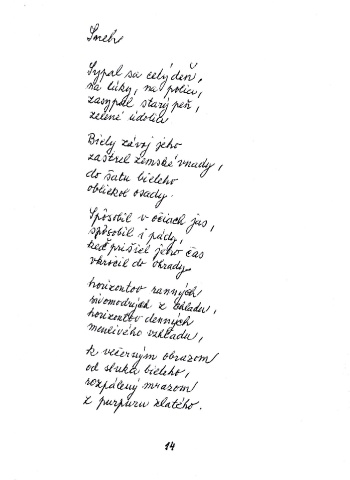 Sneh
Sypal sa celý deň,
na lúky, na polia,
zasypal starý peň,
zelené údolia
Biely závoj jeho
zastrel zemské vnady,
do šatu bieleho
obliekol osady.
Spôsobil v očiach jas,
spôsobil i pády,
keď prišiel jeho čas
vkročil do
horizontov ranných
sivomodrých z chladu,
horizontov denných
menlivého vzhľadu,
k večerným obrazom
od slnka bieleho,
rozpálený mrazom
z purpuru zlatého.
14